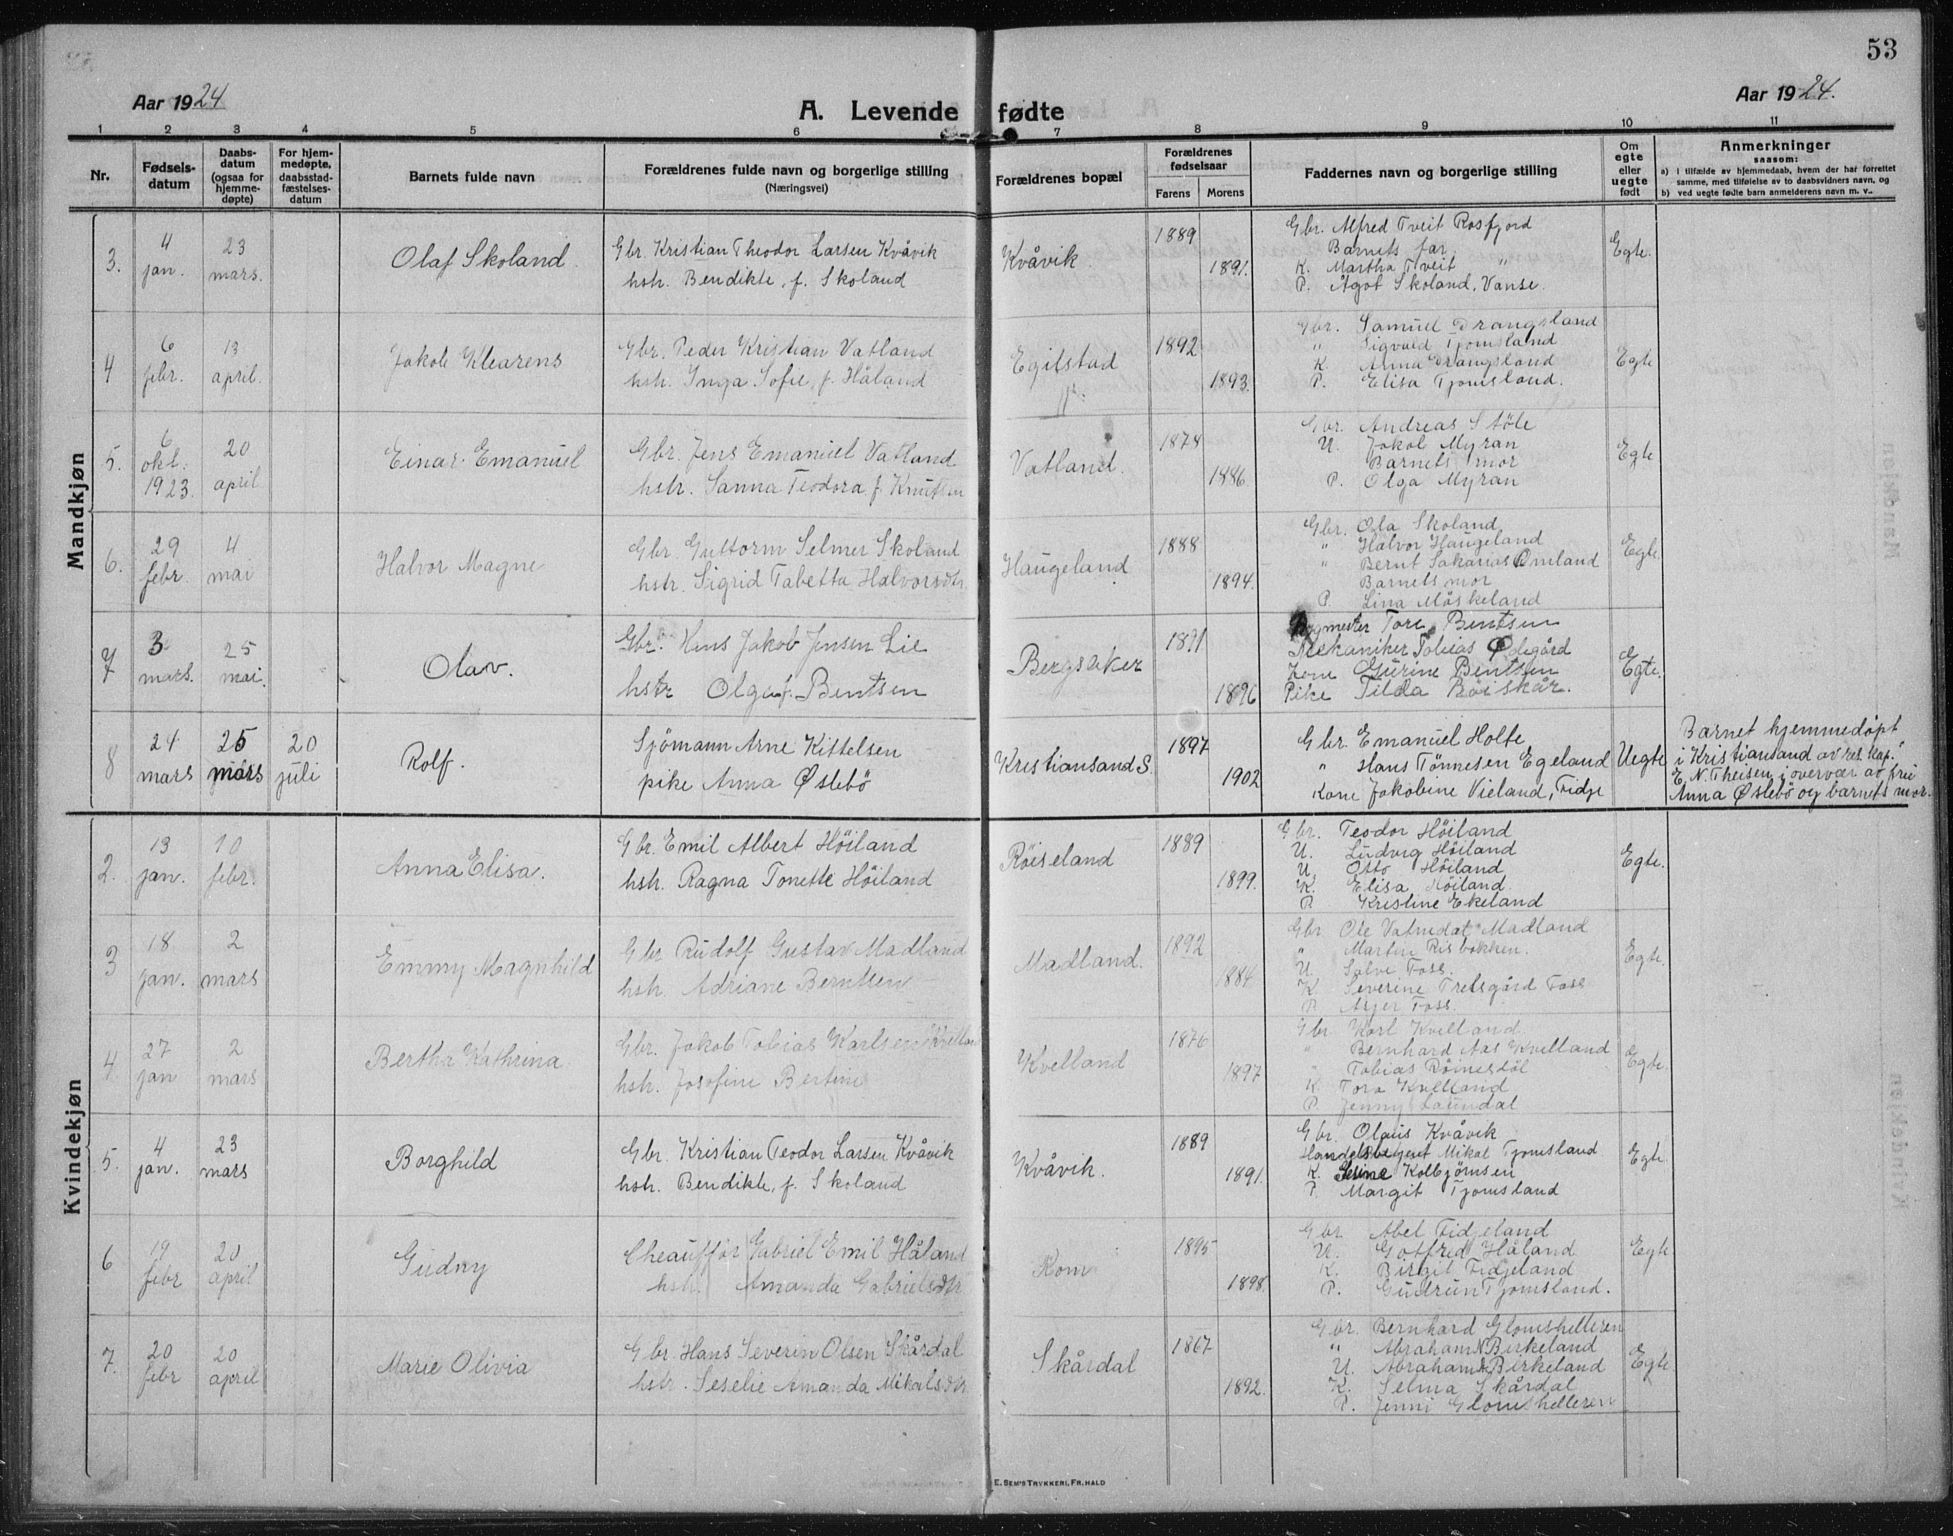 53
Aar 1924
Aar 1924.
A. Levende fødte
1 2 3 4 5 6 7 8 9 10 11
Nr.
Fødsels-
datum
Daabs-
datum
(ogsaa for
hjemme-
døpte)
For hjem-
medøpte,
daabsstad-
fæstelses-
datum
Barnets fulde navn
Forældrenes fulde navn og borgerlige stilling
(Næringsvei)
Forældrenes bopæl
Forældrenes
fødselsaar
Farens Morens
Faddernes navn og borgerlige stilling
Om
egte
eller
uegte
født
Anmerkninger
saasom:
a) i tilfælde av hjemmedaab, hvem der har forrettet
samme, med tilføielse av to daabsvidners navn, og
b) ved uegte fødte barn anmelderens navn m. v.
Mandkjøn
3. 4 jan. 23 mars. Olaf Skoland
Gbr. Kristian Theodor Larsen Kvåvik
hstr. Bendikte, f. Skoland
Kvåvik 1889 1891.
Gbr. Alfred Tveit Rosfjord
Barnets far
K. Martha Tveit "
P. Ågot Skoland, Vanse.
Egte.
4 6 febr. 13 april. Jakob Klearens
Gbr. Peder Kristian Vatland
hstr. Inga Sofie, f. Håland
Egilstad 1892 1893.
Gbr. Samuel Drangsland
" Sigvald Tjomsland
K. Anna Drangsland
P. Elisa Tjomsland.
Egte
5. 6 okt. 1923. 20 april Einar Emanuel
Gbr. Jens Emanuel Vatland
hstr. Sanna Teodora f. Knutsen
Vatland. 1874 1886
Gbr. Andreas Støle
U. Jakob Myran
Barnets mor
P. Olga Myran
Egte
6. 29 febr. 4 mai Halvor Magne
Gbr. Guttorm Selmer Skoland
hstr. Sigrid Tabetta Halvorsdtr
Haugeland 1888 1894.
Gbr. Ola Skoland
" Halvor Haugeland
" Bernt Sakarias Omland
Barnets mor
P. Lina Møskeland
Egte.
7 3 mars. 25 mai. Olav.
Gbr. Hans Jakob Jensen Lie
hstr Olga f. Bentsen
Bergsaker 1891 1896
Tore Bentsen
Mekaniker Tobias Ødegård
Kone Gurine Bentsen
Pike Tilda Börskår.
Egte.
8 24 mars 25 mars 20 juli Rolf.
Sjömann Arne Kittelsen
pike Anna Øslebö
Kristiansand S. 1897 1902
Gbr. Emanuel Holte
" Hans Tönnesen Egeland
Kone Jakobine Vieland, Fidje
Uegte
Barnet hjemmedöpt
i Kristiansand av res. kap.
E. N. Theisen i overvær av frü
Anna Øslebö og barnets mor.
Kvindekjøn
2. 13 jan. 10 febr. Anna Elisa.
Gbr. Emil Albert Höiland
hstr. Ragna Tonette Höiland
Röiseland 1889 1899.
Gbr. Teodor Höiland
U. Ludvig Höiland
U. Otto Höiland
K. Elisa Höiland
P. Kristine Ekeland
Egte.
3 18 jan. 2 mars Emmy Magnhild
Gbr. Rudolf Gustav Madland
hstr. Adriane Berntsen
Madland. 1892 1884
Gbr. Ole Vatnedal Madland
" Martin Risbakken.
U. Salve Foss.
K Severine Tretsgård Foss
P. Asjer Foss.
Egte.
4. 27 jan 2 mars Bertha Kathrina
Gbr. Jakob Tobias Karlsen Kvelland
hstr. Josofine Bertine
Kvelland 1876 1897
Gbr Karl Kvelland
" Bernhard Aas Kvelland
" Tobias Römesdöl
K. Tora Kvelland
P. Jenny Laundal
Egte.
5. 4 jan. 23 mars Borghild
Gbr. Kristian Teodor Larsen Kvåvik
hstr. Bendikte, f. Skoland
Kvåvik. 1889 1891.
Gbr. Olaus Kvåvik
Handelsbetjent Mikal Tjomsland
K. Seline Kolbjørnsen
P. Margit Tjomsland
Egte.
6 19 febr 20 april Gudny
Cheaufför Gabriel Emil Håland
hstr. Amanda Gabrielsdtr
Kom 1895 1898.
Gbr. Abel Fidjeland
U. Gotfred Håland
K. Birgit Fidjeland
P. Gudrun Tjomsland.
Egte
7. 20 febr 20 april Marie Olivia
Gbr. Hans Severin Olsen Skårdal
hstr. Seselie Amanda Mikalsdtr.
Skårdal 1867 1892.
Gbr. Bernhard Glomshelleren
" Abraham N Birkeland
U. Abraham A Birkeland
K. Selma Skårdal
P. Jenni Glomshelleren
Egte
E. SEM'S TRYKKERI, FR.HALD